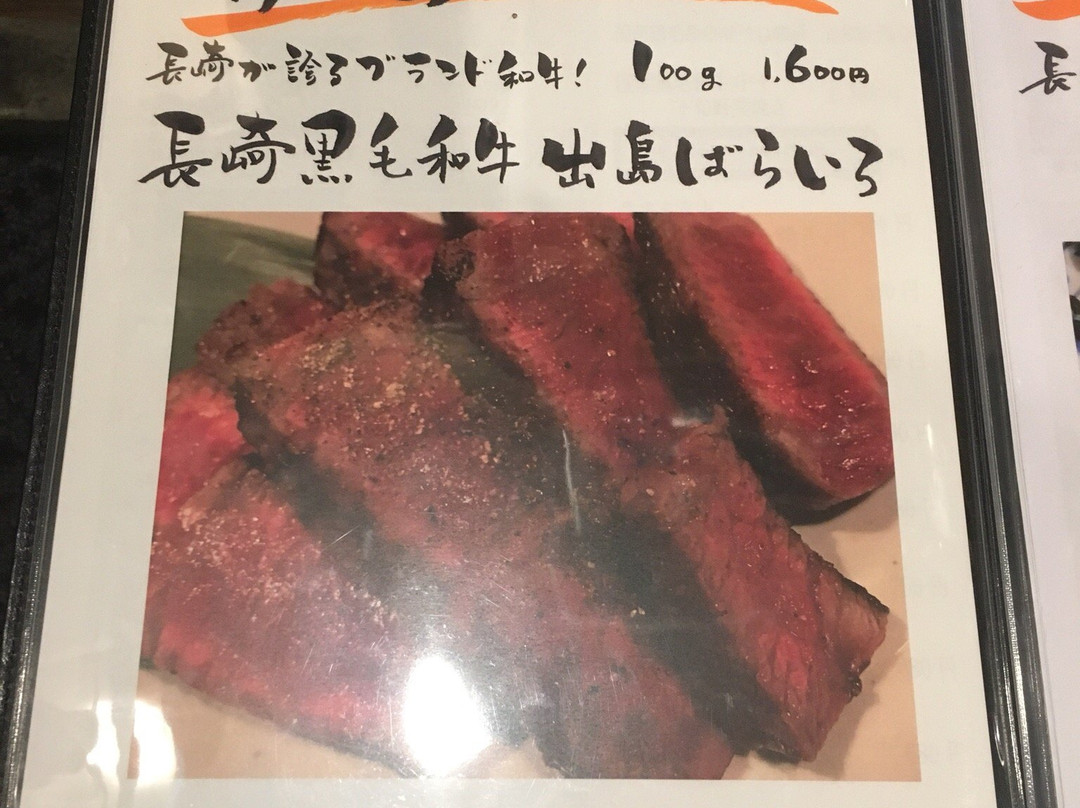 長崎が誇るブランド和牛! 100g 1,600円
長崎黒毛和牛 出島ばらいろ
長